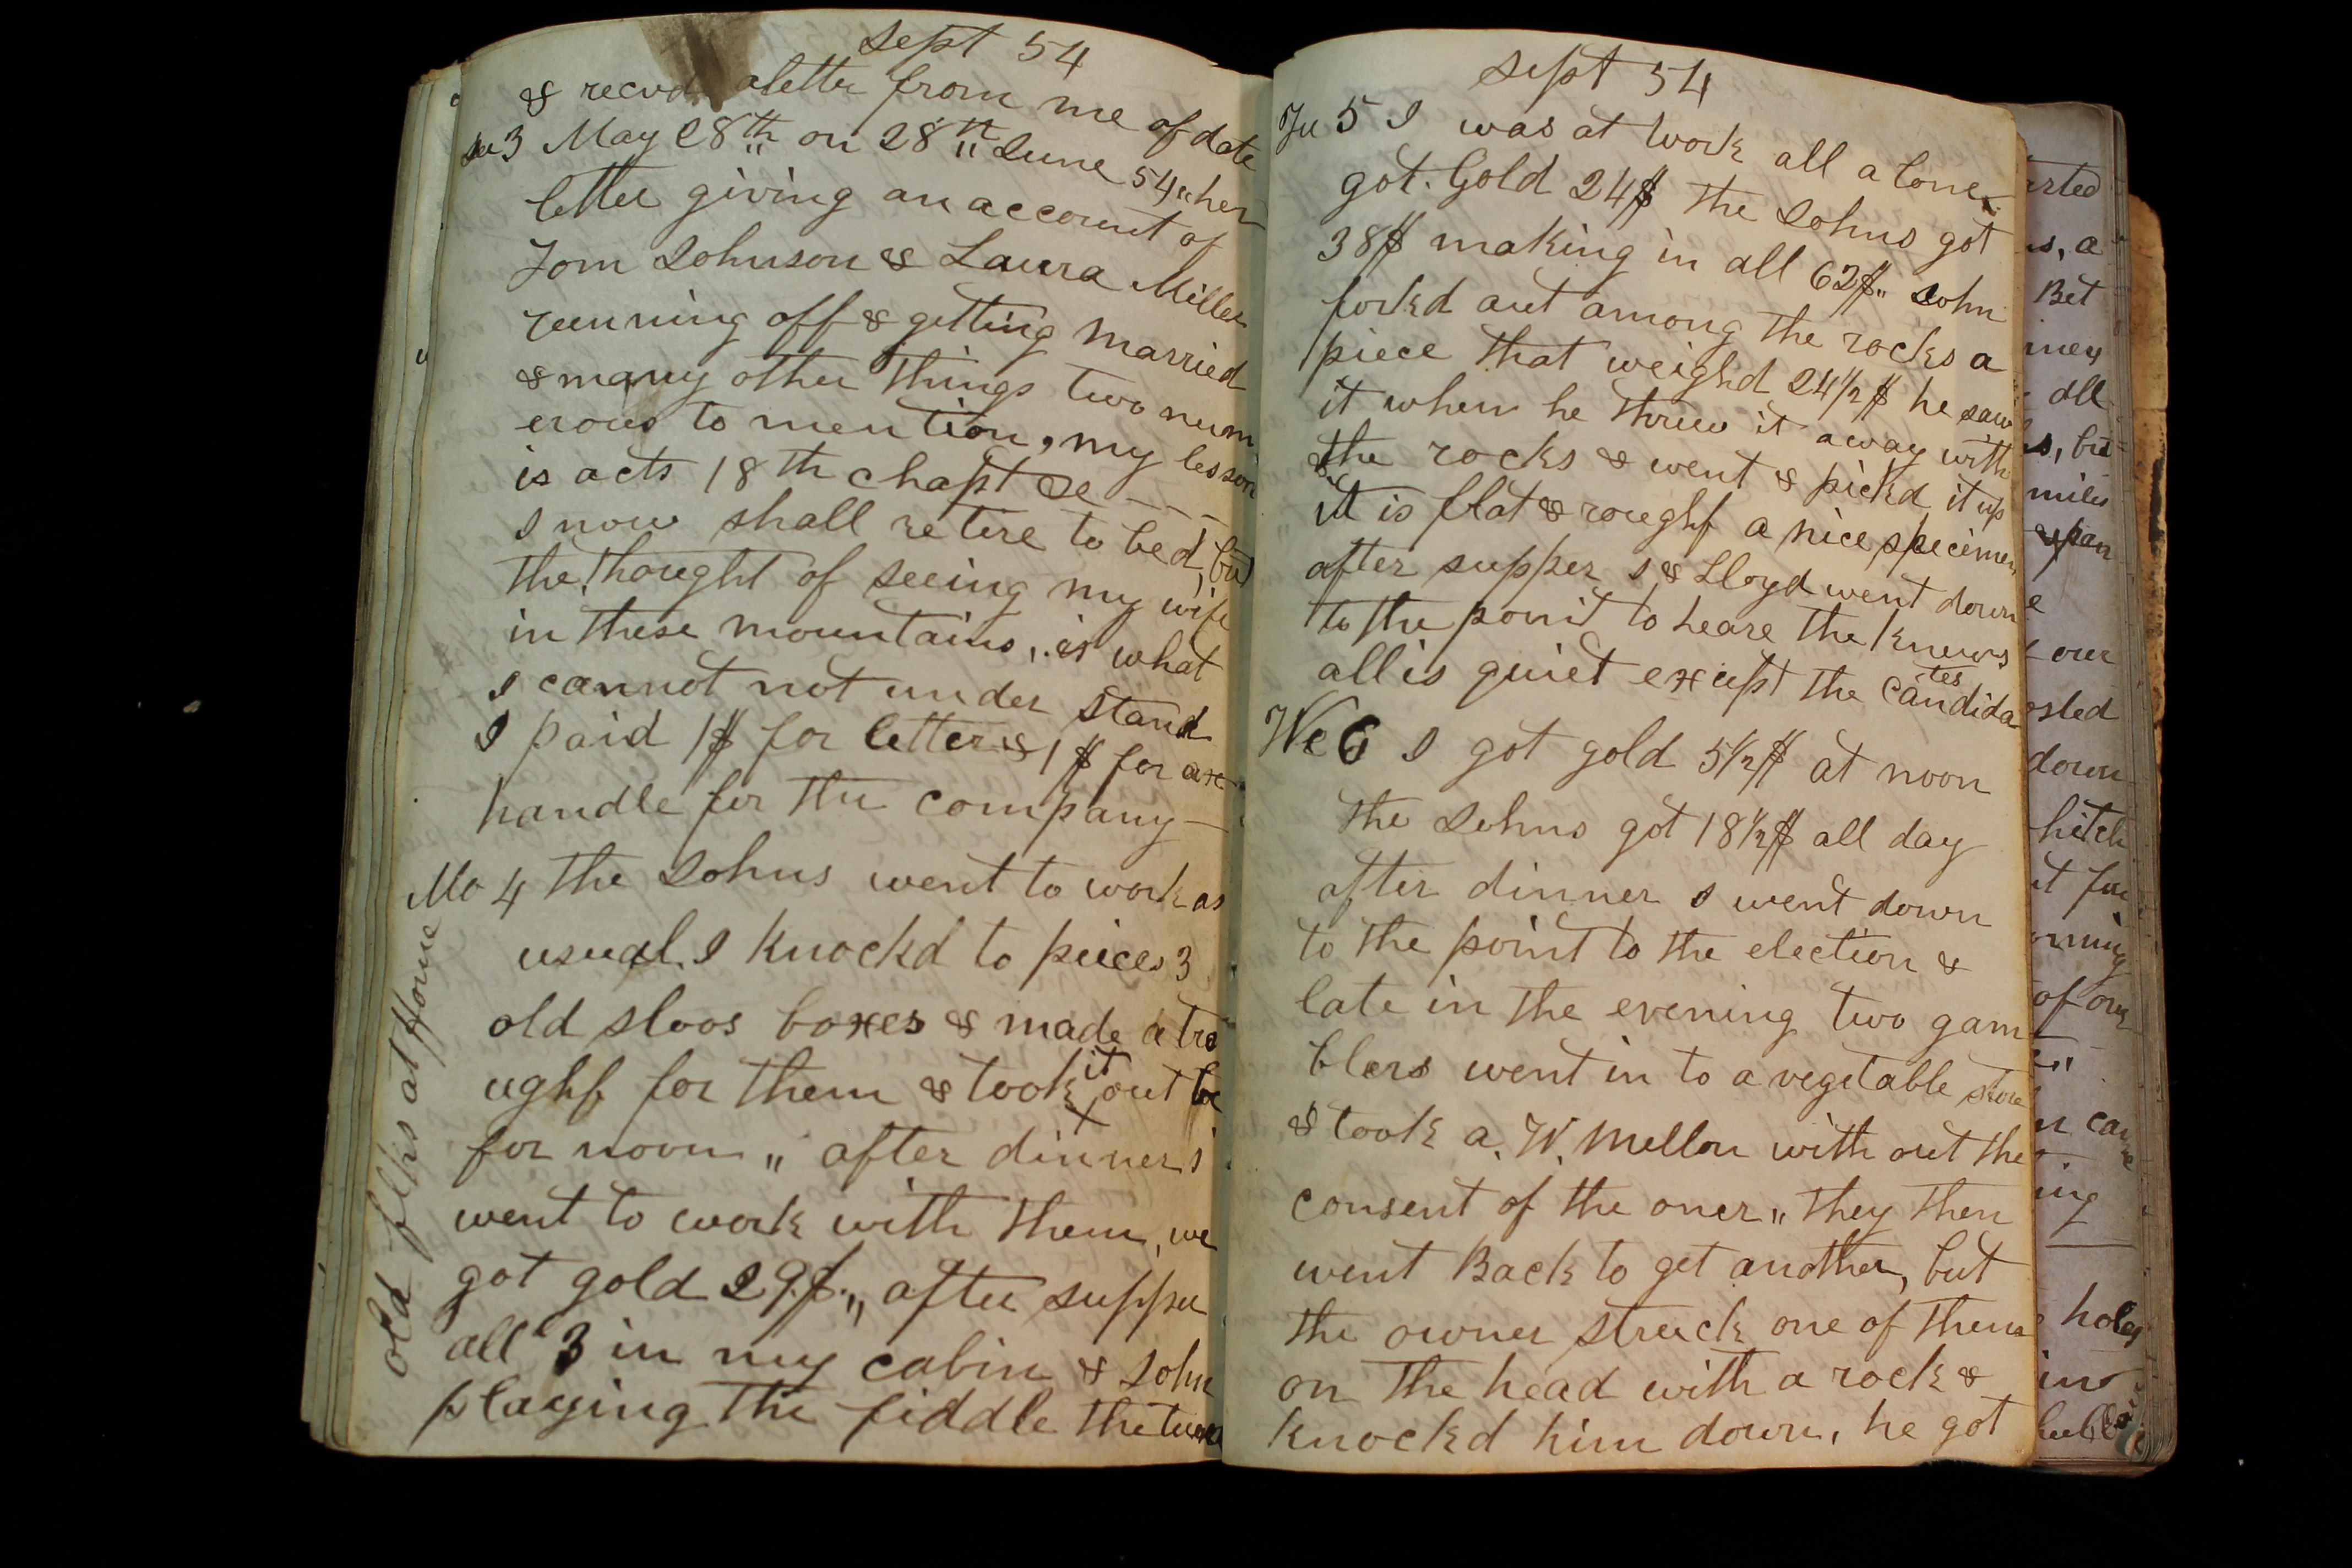 sept 54
& recvd aletter from me of date
su 3 May 28th on 28th June 54 " her
letter giving an account of
Tom Johnson & Laura Miller
running off & getting married
& many other things two num
erous to mention, my lesson
is acts 18th chapt &c - - -
I now shall retire to bed, but
the thought of seeing my wife
in these mountains, is what
I cannot not under stand
I paid 1$ for letter & 1$ for axe
handle for the company —
Mo 4 the Johns went to work as
usual. I knockd to pieces 3
old sloos boxes & made a tro
ughf for them & took it out be
for noon „ after dinner i
went to work with them, we
got gold 29$ „ after supper
all 3 in my cabin & John
playing the fiddle the tune
old flks at Home
sept 54
Tu 5 I was at work all a lone
got. Gold 24$ the Johns got
38$ making in all 62$ „ John
forkd out among the rocks a
piece that weighd 24½$ he saw
it when he threw it away with
the rocks & went & pickd it up
it is flat & roughf a nice specimen
after supper I & Lloyd went down
to the point to heare the knews
all is quiet except the candida
tes
We 6 I got gold 5½$ at noon
the Johns got 18½$ all day
after dinner I went down
to the point to the election &
late in the evening two gam
blers went in to a vegetable store
& took a. W. Mellon with out the
consent of the oner „ they then
went Back to get another, but
the owner struck one of them
on the head with a rock &
knockd him down, he got
arted
s, a
Bet
all
miles
& pan
our
down
hitch
of our
ing
holes